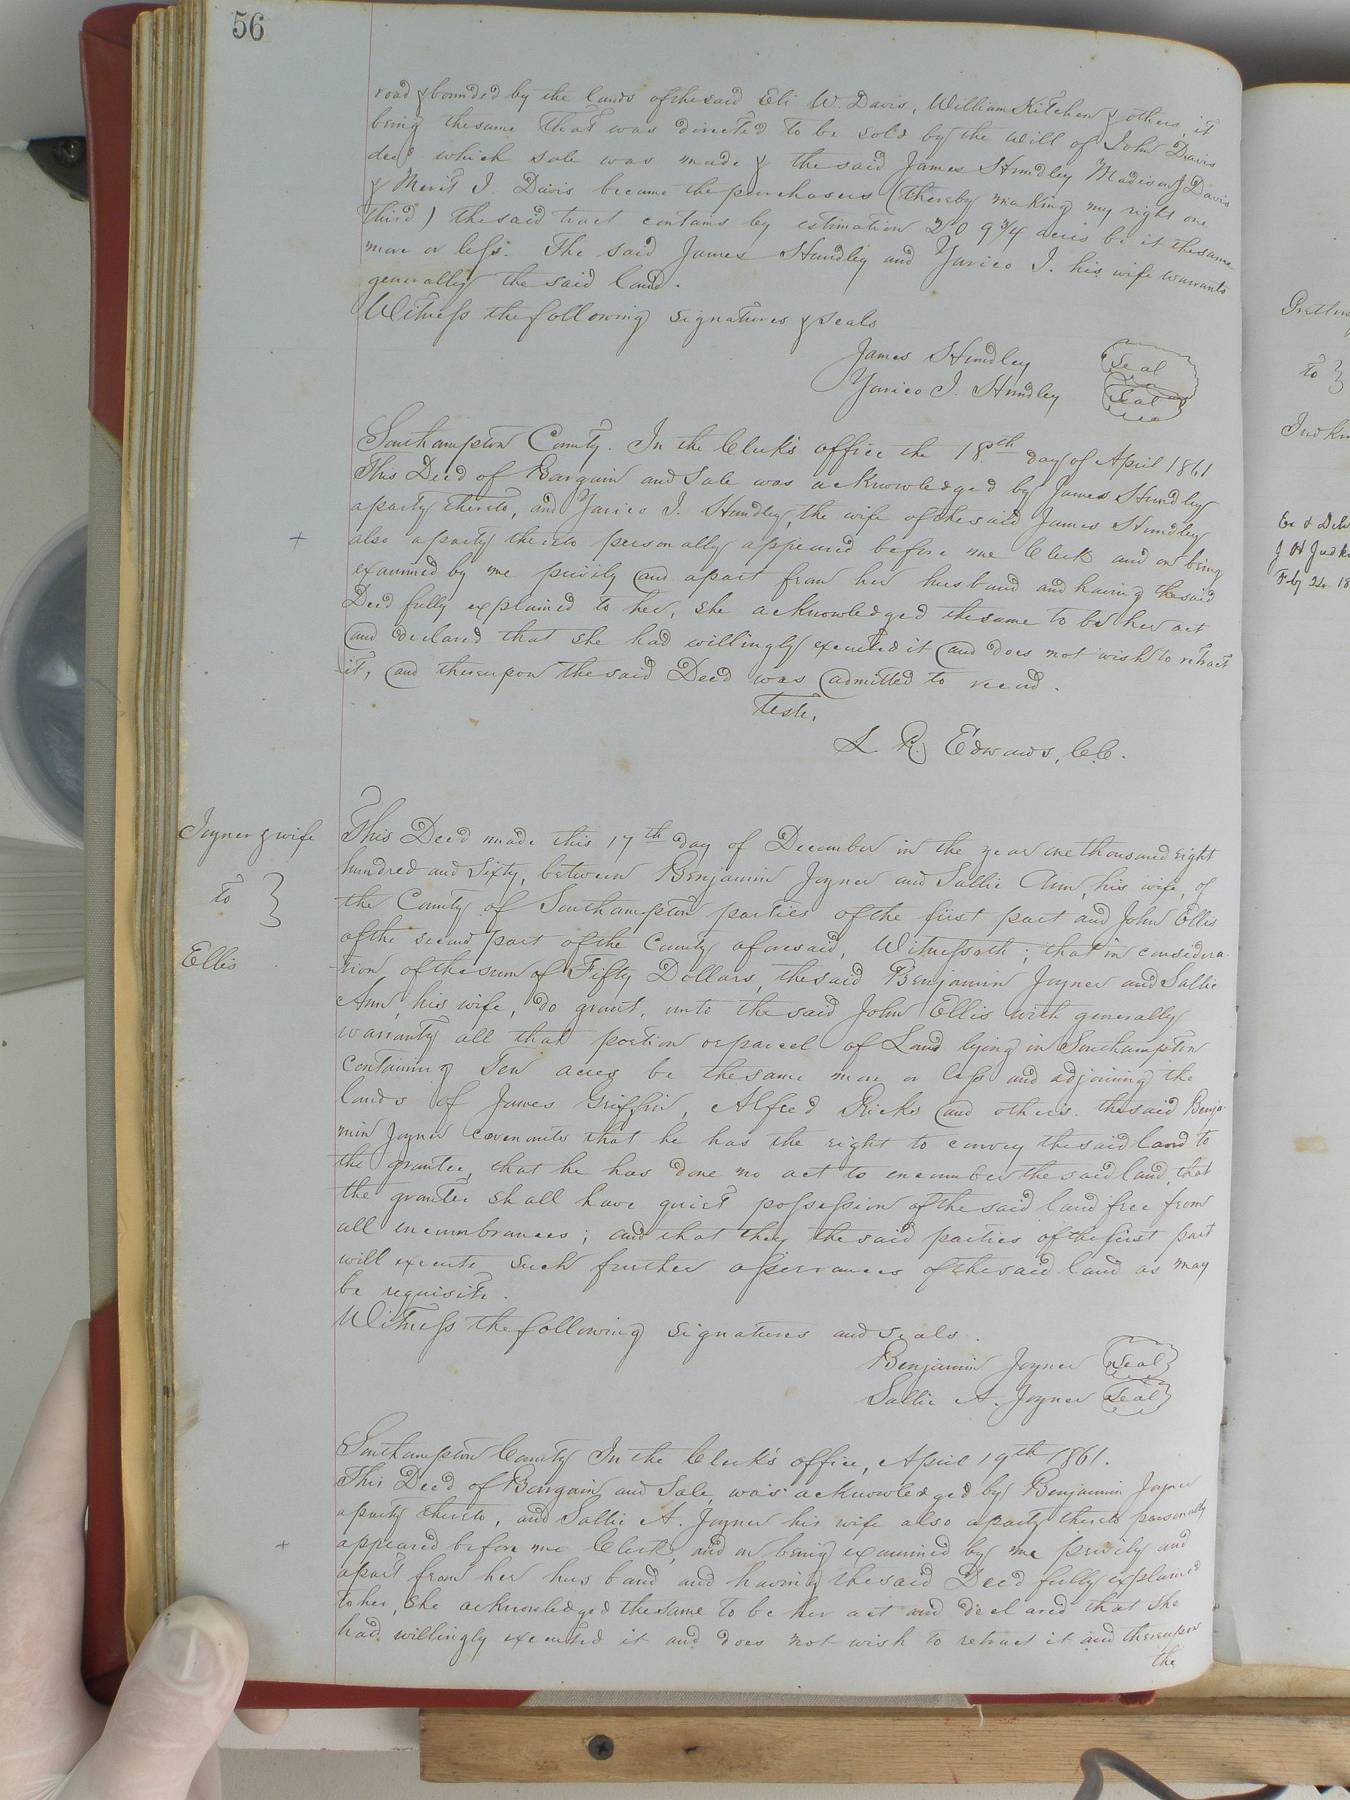 56
road & bounded by the lands of the said Eli W. Davis, William Kitchen & others, it
being the same that was directed to be sold by the will of John Davis
decd which sale was made & the said James Hundley Madison J Davis
& Merit J. Davis became the purchasers (thereby making my right one
third) the said tract contains by estimation 209 3/4 acres be it the same
more or less. The said James Hundley and Yarico J. his wife warrants
generally the said land.
Witness the following signatures & seals
James Hundley Seal
Yarico J. Hundley Seal
Southampton County. In the Clerk's office the 18th day of April 1861
This Deed of Bargain and Sale was acknowledged by James Hundley
a party thereto, and Yarico J. Hundley, the wife of the said James Hundley
also a party thereto personally appeared before me Clerk and on being
+
examined by me privily and apart from her husband and having the said
Deed fully explained to her, she acknowledged the same to be her act
and declared that she had willingly executed it and does not wish to retract
it, and thereupon the said Deed was admitted to record.
Teste,
L. R. Edwards, C.C.
Joyner & wife
to }
Ellis
This Deed made this 17th day of December in the year one thousand eight
hundred and sixty, between Benjamin Joyner and Sallie Ann, his wife, of
the County of Southampton parties of the first part and John Ellis
of the second part of the County aforesaid, Witnesseth; that in considera-
tion of the sum of Fifty Dollars, the said Benjamin Joyner and Sallie
Ann, his wife, do grant, unto the said John Ellis with generally
warranty all that portion or parcel of Land lying in Southampton
containing Ten acres be the same more or less and adjoining the
lands of James Griffin, Alfred Ricks and others. the said Benja-
min Joyner covenants that he has the right to convey the said land to
the grantee, that he has done no act to encumber the said land, that
the grantee shall have quiet possession of the said land free from
all encumbrances; and that they the said parties of the first part
will execute such further assurances of the said land as may
be requisite.
Witness the following signatures and seals.
Benjamin Joyner Seal
Sallie A. Joyner Seal
Southampton County In the Clerk's office, April 19th 1861.
This Deed of Bargain and Sale, was acknowledged by Benjamin Joyner
a party thereto, and Sallie A. Joyner his wife also a party thereto personally
+
appeared before me Clerk, and on being examined by me privily and
apart from her husband and having the said Deed fully explained
to her, she acknowledged the same to be her act and declared that she
had willingly executed it and does not wish to retract it and thereupon
the
to }
Ex & Del
Feby 24 18